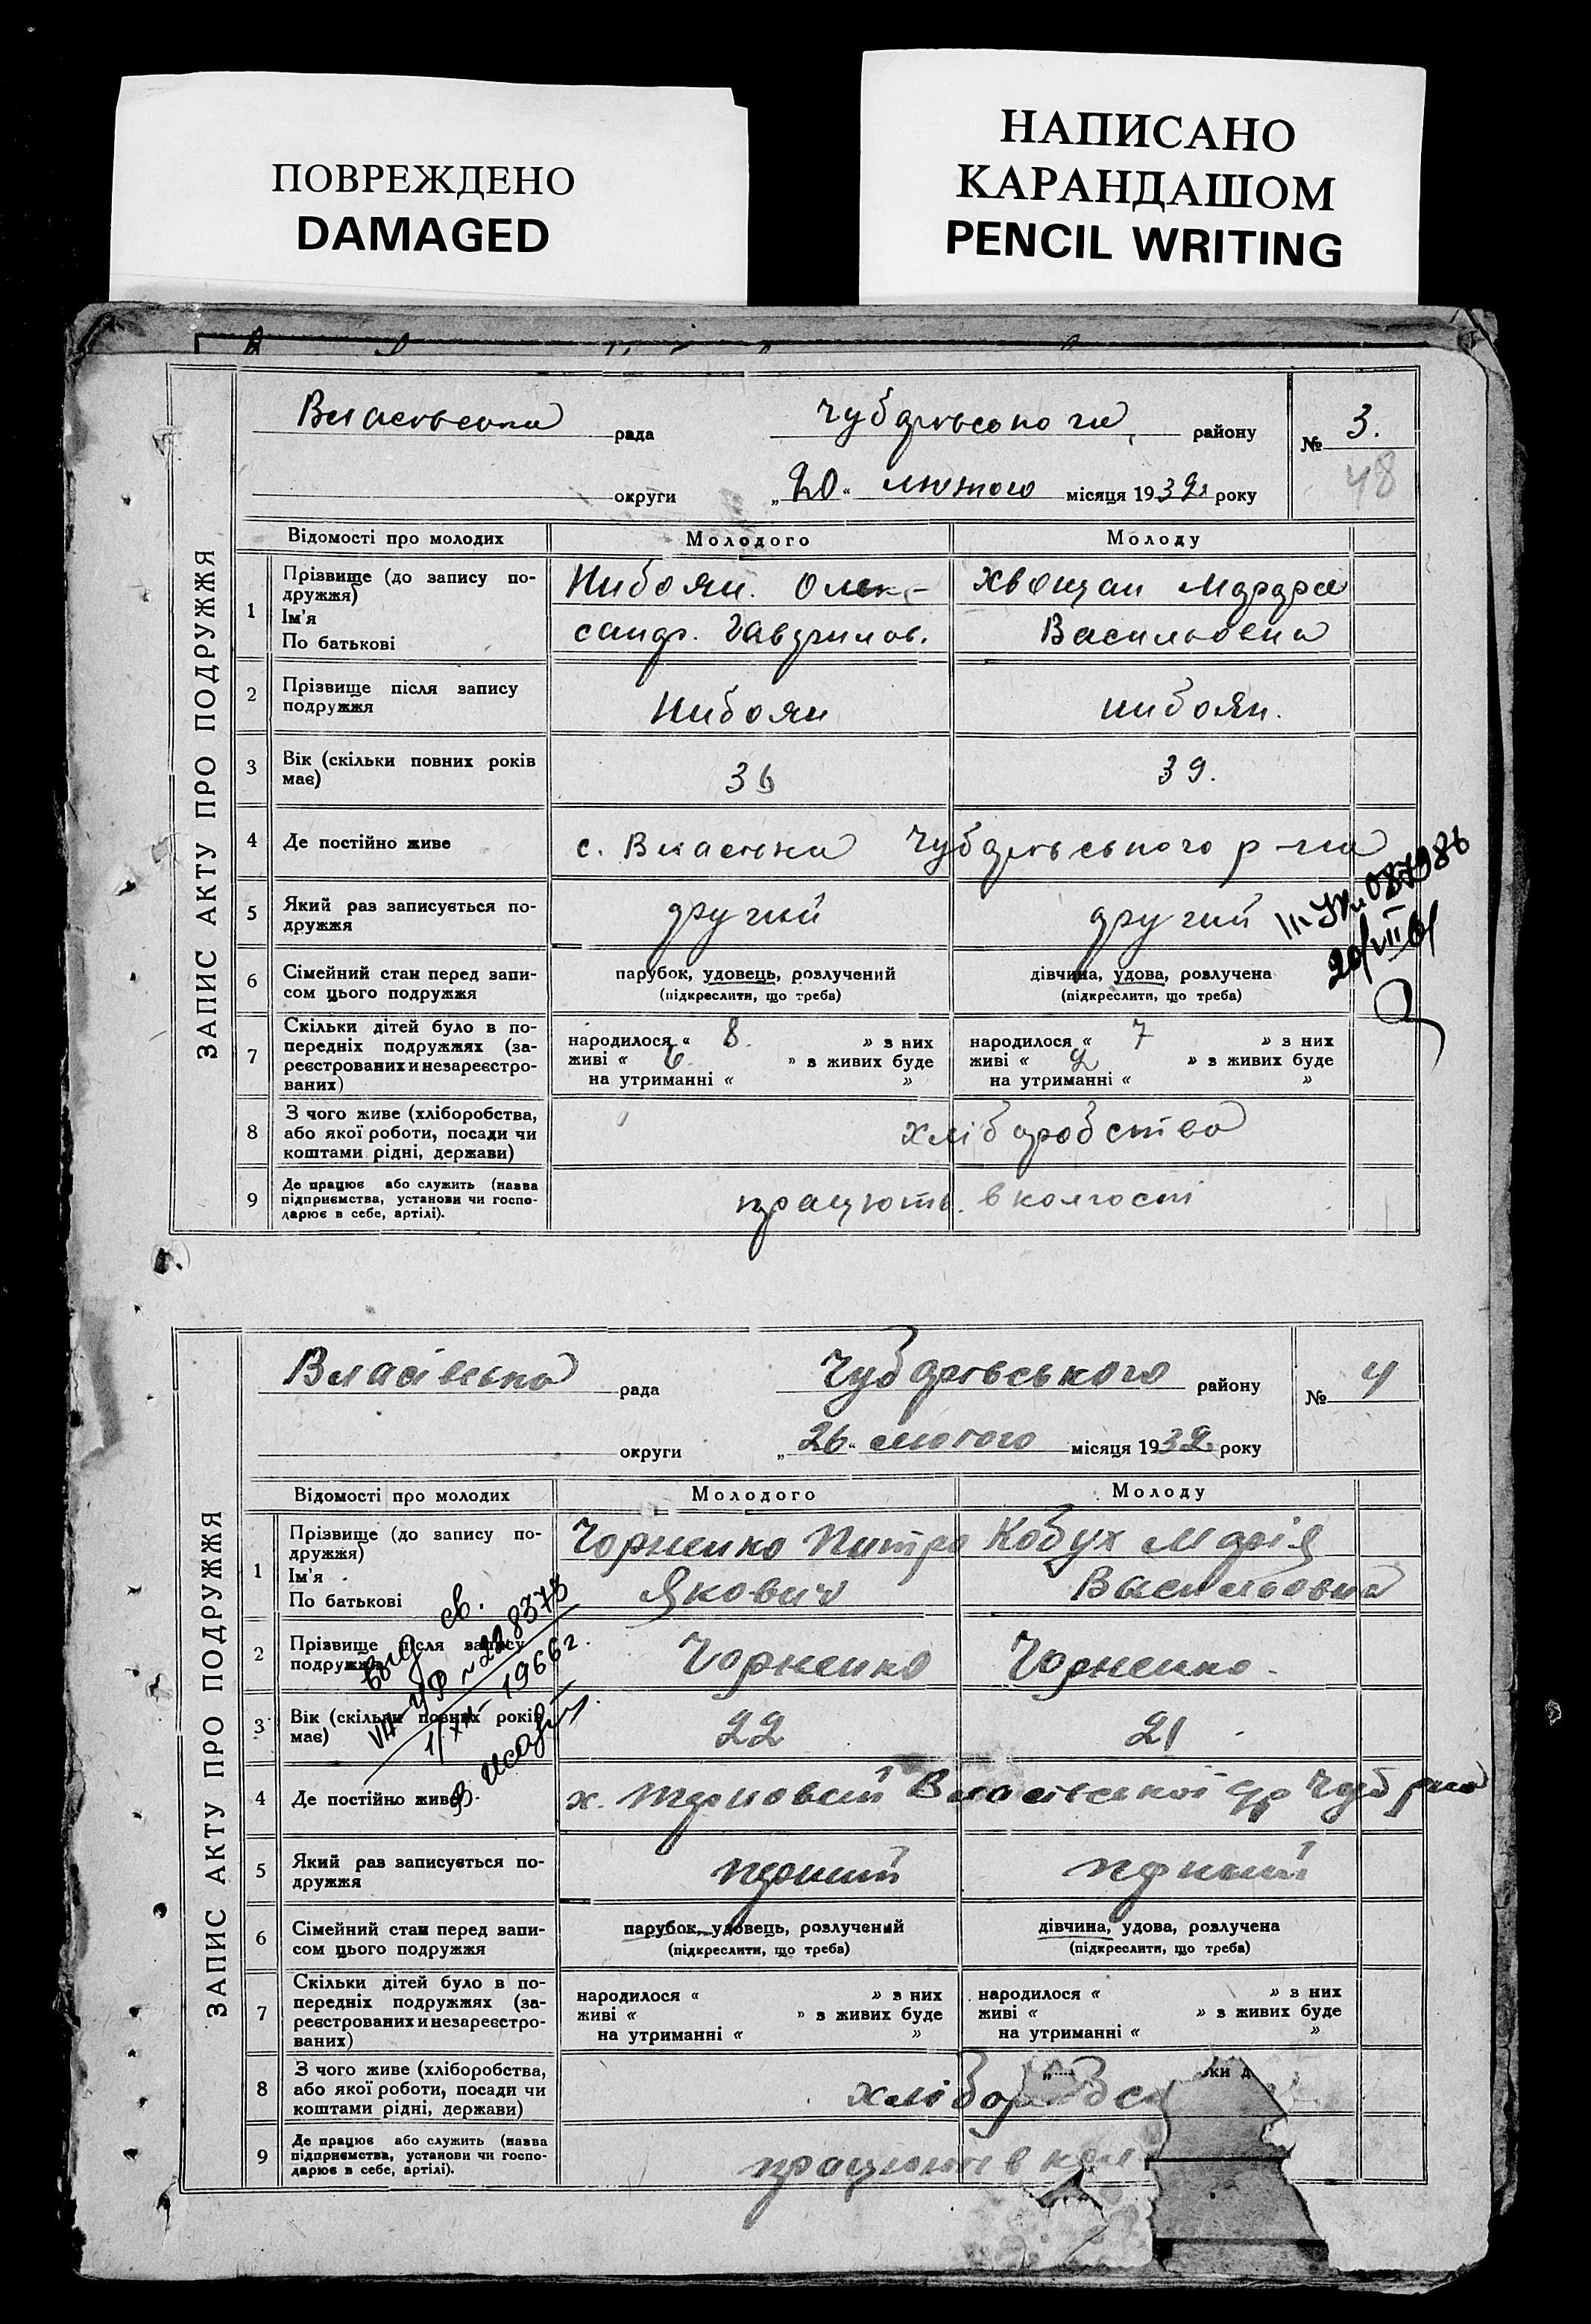 ПОВРЕЖДЕНО
DAMAGED
НАПИСАНО
КАРАНДАШОМ
PENCIL WRITING
ЗАПИС АКТУ ПРО ПОДРУЖЖЯ
рада
району
№ 3.
48
округи „20“ лютого місяця 1932 року
Відомості про молодих Молодого Молоду
1 Прізвище (до запису по-
дружжя)
Ім'я
По батькові
Олек-
санд.
Васильовна
2 Прізвище після запису
подружжя
3 Вік (скільки повних років
має)
36 39.
4 Де постійно живе
с. Власівка
5 Який раз записується по-
дружжя
другий другий
6 Сімейний стан перед запи-
сом цього подружжя
парубок, удовець, розлучений
(підкреслити, що треба)
дівчина, удова, розлучена
(підкреслити, що треба)
7 Скільки дітей було в по-
передніх подружжях (за-
реєстрованих и незареєстро-
ваних)
народилося « 8. » з них
живі « 6. » з живих буде
на утриманні « »
народилося « 7 » з них
живі « 2 » з живих буде
на утриманні « »
8 З чого живе (хліборобства,
або якої роботи, посади чи
коштами рідні, держави)
хліборобство
9 Де працює або служить (назва
підприємства, установи чи госпо-
дарює в себе, артілі).
працюють в колгоспі
ЗАПИС АКТУ ПРО ПОДРУЖЖЯ
Власівська рада
району
№ 4
округи „26“ лютого місяця 1932 року
Відомості про молодих Молодого Молоду
1 Прізвище (до запису по-
дружжя)
Ім'я
По батькові
Чорненко Питро
Якович
Кобух Марія
Васильовна
2 Прізвище після запису
подружжя
Чорненко Чорненко
3 Вік (скільки повних років
має)
22 21
4 Де постійно живе
х. Власівської
5 Який раз записується по-
дружжя
перший перший
6 Сімейний стан перед запи-
сом цього подружжя
парубок, удовець, розлучений
(підкреслити, що треба)
дівчина, удова, розлучена
(підкреслити, що треба)
7 Скільки дітей було в по-
передніх подружжях (за-
реєстрованих и незареєстро-
ваних)
народилося « » з них
живі « » з живих буде
на утриманні « »
народилося « » з них
живі « » з живих буде
на утриманні « »
8 З чого живе (хліборобства,
або якої роботи, посади чи
коштами рідні, держави)
9 Де працює або служить (назва
підприємства, установи чи госпо-
дарює в себе, артілі).